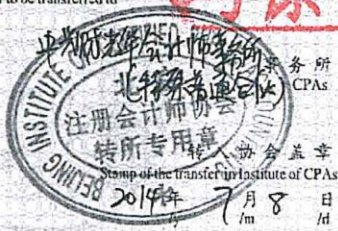 to be transferred to
中兴财光华会计师事务所
(特殊普通合伙) 事务所
CPAs
BEIJING INSTITUTE
注册会计师协会
转所专用章
转入协会盖章
Stamp of the transfer-in Institute of CPAs
2014年 7月 8日
/y /m /d